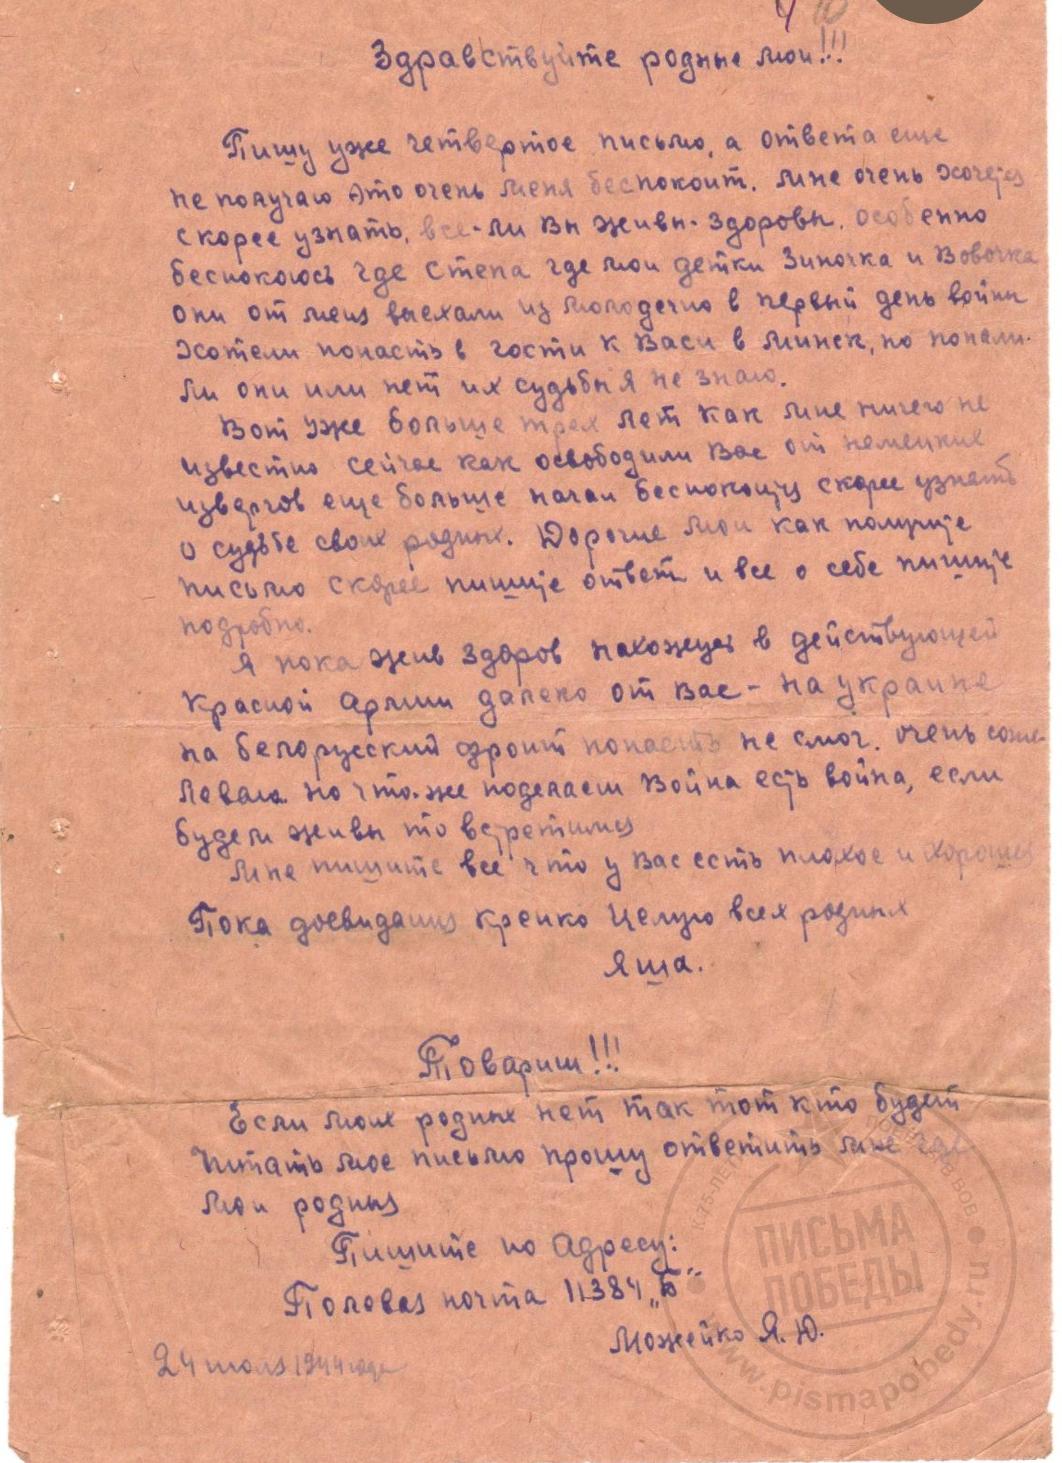 Здравствуйте родные мои!!!
Пишу уже четвертое письмо, а ответа еще
не получаю это очень меня беспокоит. мне очень хочется
скорее узнать, все-ли вы живы-здоровы. особенно
беспокоюсь где Степа где мои детки Зиночка и Вовочка
они от меня выехали из Молодечно в первый день войны
хотели попасть в гости к Васи в Минск, но попали-
ли они или нет их судьбы я не знаю.
Вот уже больше трех лет как мне ничего не
известно сейчас как освободили Вас от немецких
извергов еще больше начал беспокоится скорее узнать
о судьбе своих родных. Дорогие мои как получите
письмо скорее пишите ответ и все о себе пишите
подробно.
Я пока жив здоров нахожуся в действующей
Красной Армии далеко от вас - на украине
на белорусский фронт попасть не смог. очень сожа-
левал но что-же поделаем война есть война, если
будем живы то встретимся
Мне пишите все что у вас есть плохое и хорошее
Пока досвидания крепко целую всех родных
Яша.
Товарищ!!!
Если моих родных нет так тот кто будет
читать мое письмо прошу ответить мне где
мои родныя
Пишите по адресу:
Полевая почта 11384 „Б"
Можейко Я.Ю.
24 июля 1944 года
К 75-ЛЕТ ПОБЕДЫ В ВОВ
ПИСЬМА
ПОБЕДЫ
www.pismapobedy.ru